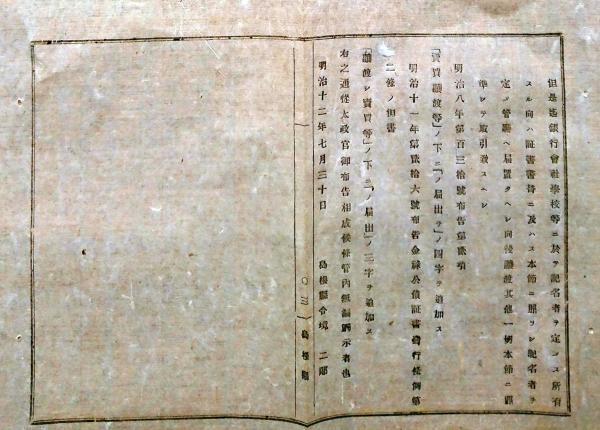 但是迄銀行會社學校等ニ於テ記名者ヲ定メス所有
スル向ハ証書書替ニ及ハス本節ニ照リシ記名者ヲ
定メ管廳ヘ届置クヘシ向後讓渡其他一切本節ニ照
準シテ取引致スヘシ
明治八年第百三拾號布告第貳項
「賣買讓渡等」ノ下ニ「ノ届出ヲ」ノ四字ヲ追加ス
明治十一年第貳拾六號布告金祿公債証書發行條例第
二條ノ但書
「讓渡シ賣買等」ノ下ニ「ノ届出」ノ三字ヲ追加ス
右之通從太政官御布告相成候條管内無漏諭示者也
明治十二年七月三十日 島根縣令境 二郎
島根縣